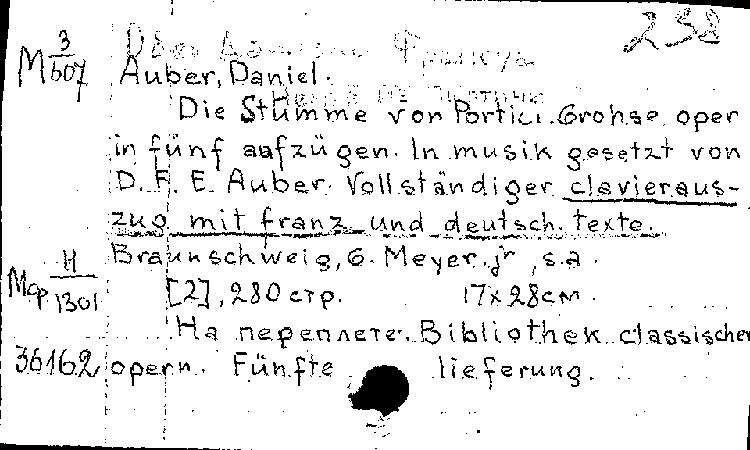 238
М 3/607
Обер Даниель Франсуа
Auber, Daniel.
Die Stumme von Portici. Grohse oper
in fünf aufzügen. In musik gesetzt von
D. F. E. Auber. Vollständiger clavieraus-
zug mit franz. und deutsch. texte.
Braunschweig, G. Meyer. jr, s.a.
Мср H/1301
[2], 280 стр. 17x28см.
На переплете: Bibliothek classischer
36162 opern. Fünfte lieferung.